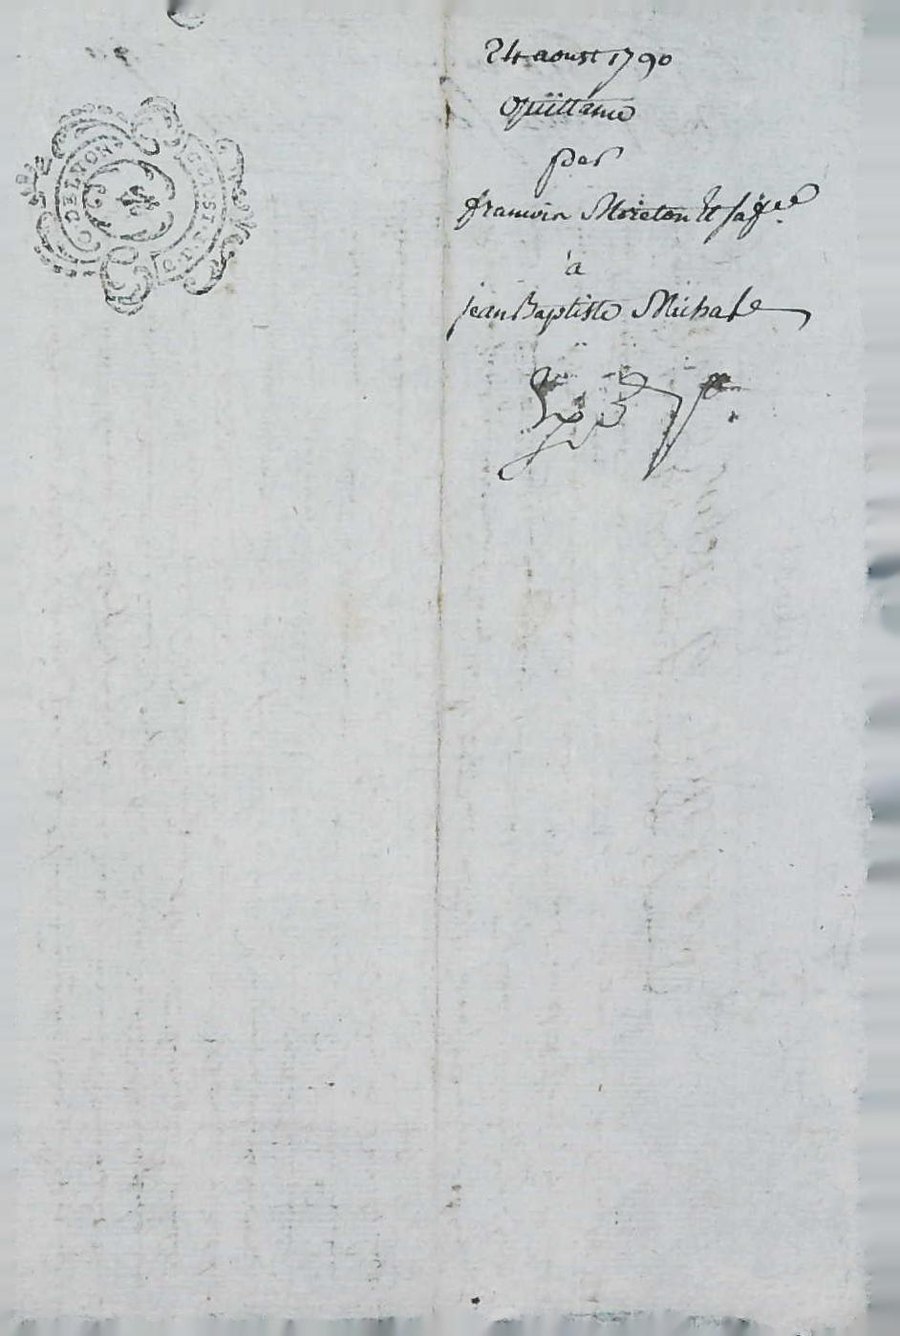 24 aoust 1790
Quittance
par
francois Moreton Et sa fee
à
jean Baptiste Michale
DE LYON